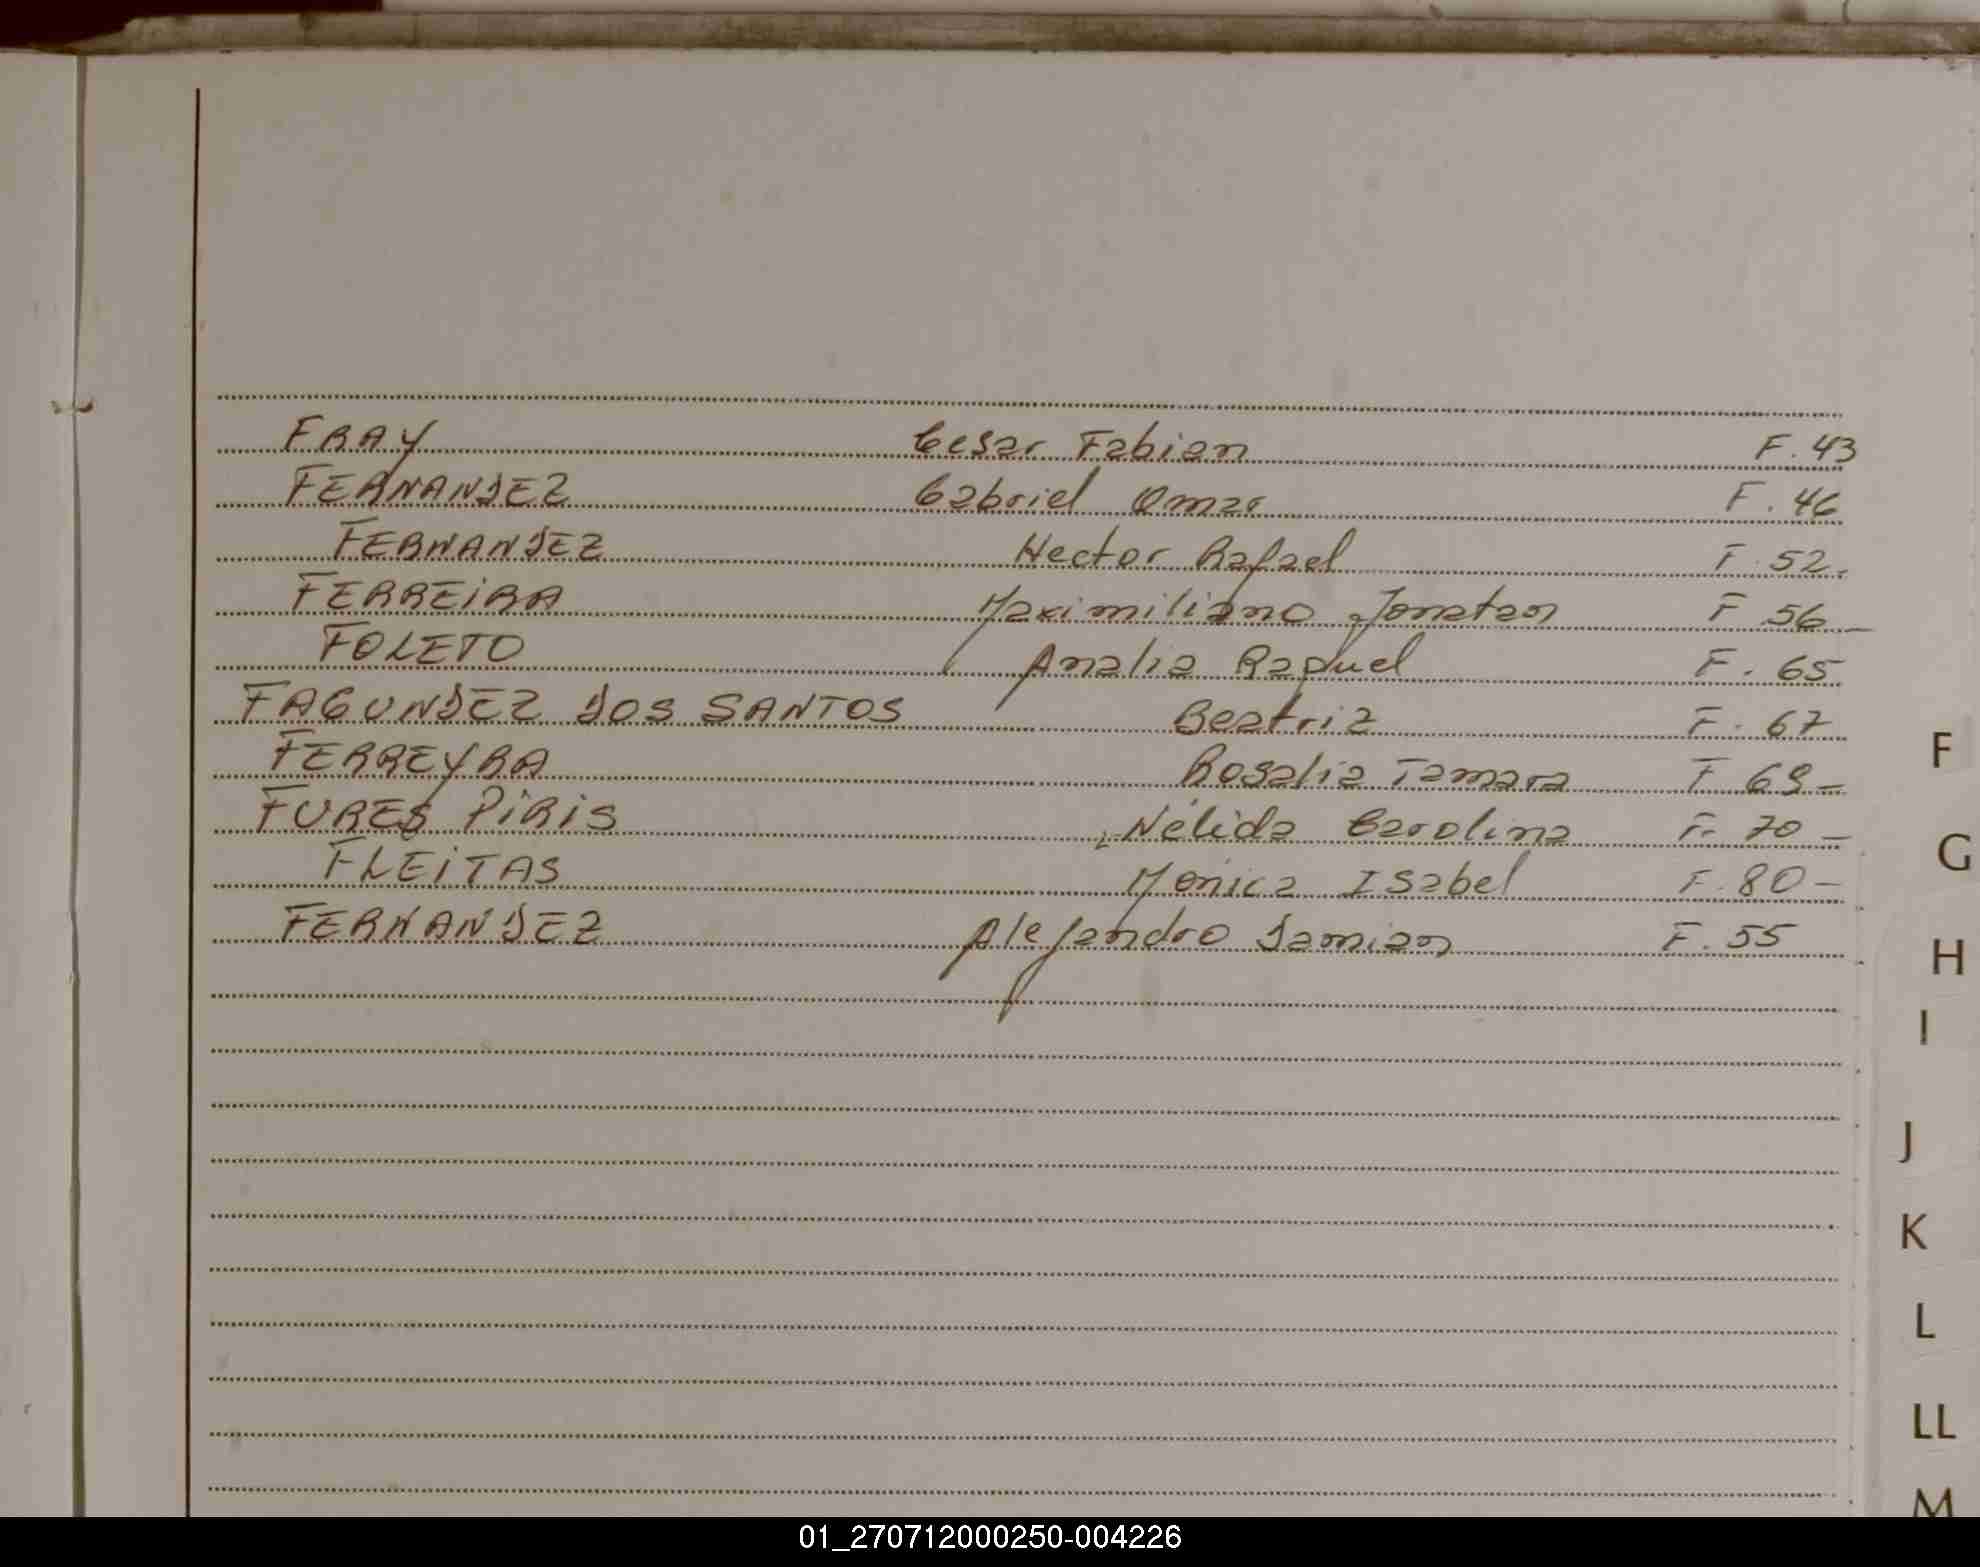 FRAY Cesar Fabian F. 43
FERNANDEZ Gabriel Omar F. 46
FERNANDEZ Hector Rafael F. 52.
FERREIRA Maximiliano Jonatan F 56 -
FOLETO Analia Raquel F. 65
FAGUNDEZ DOS SANTOS Beatriz F. 67
FERREYRA Rosalia Tamara F 69 -
FURES PIRIS Nélida Carolina F. 70 -
FLEITAS Mónica Isabel F. 80 -
FERNANDEZ Alejandro Damian F. 55
F
G
H
I
J
K
L
LL
M
01_270712000250-004226